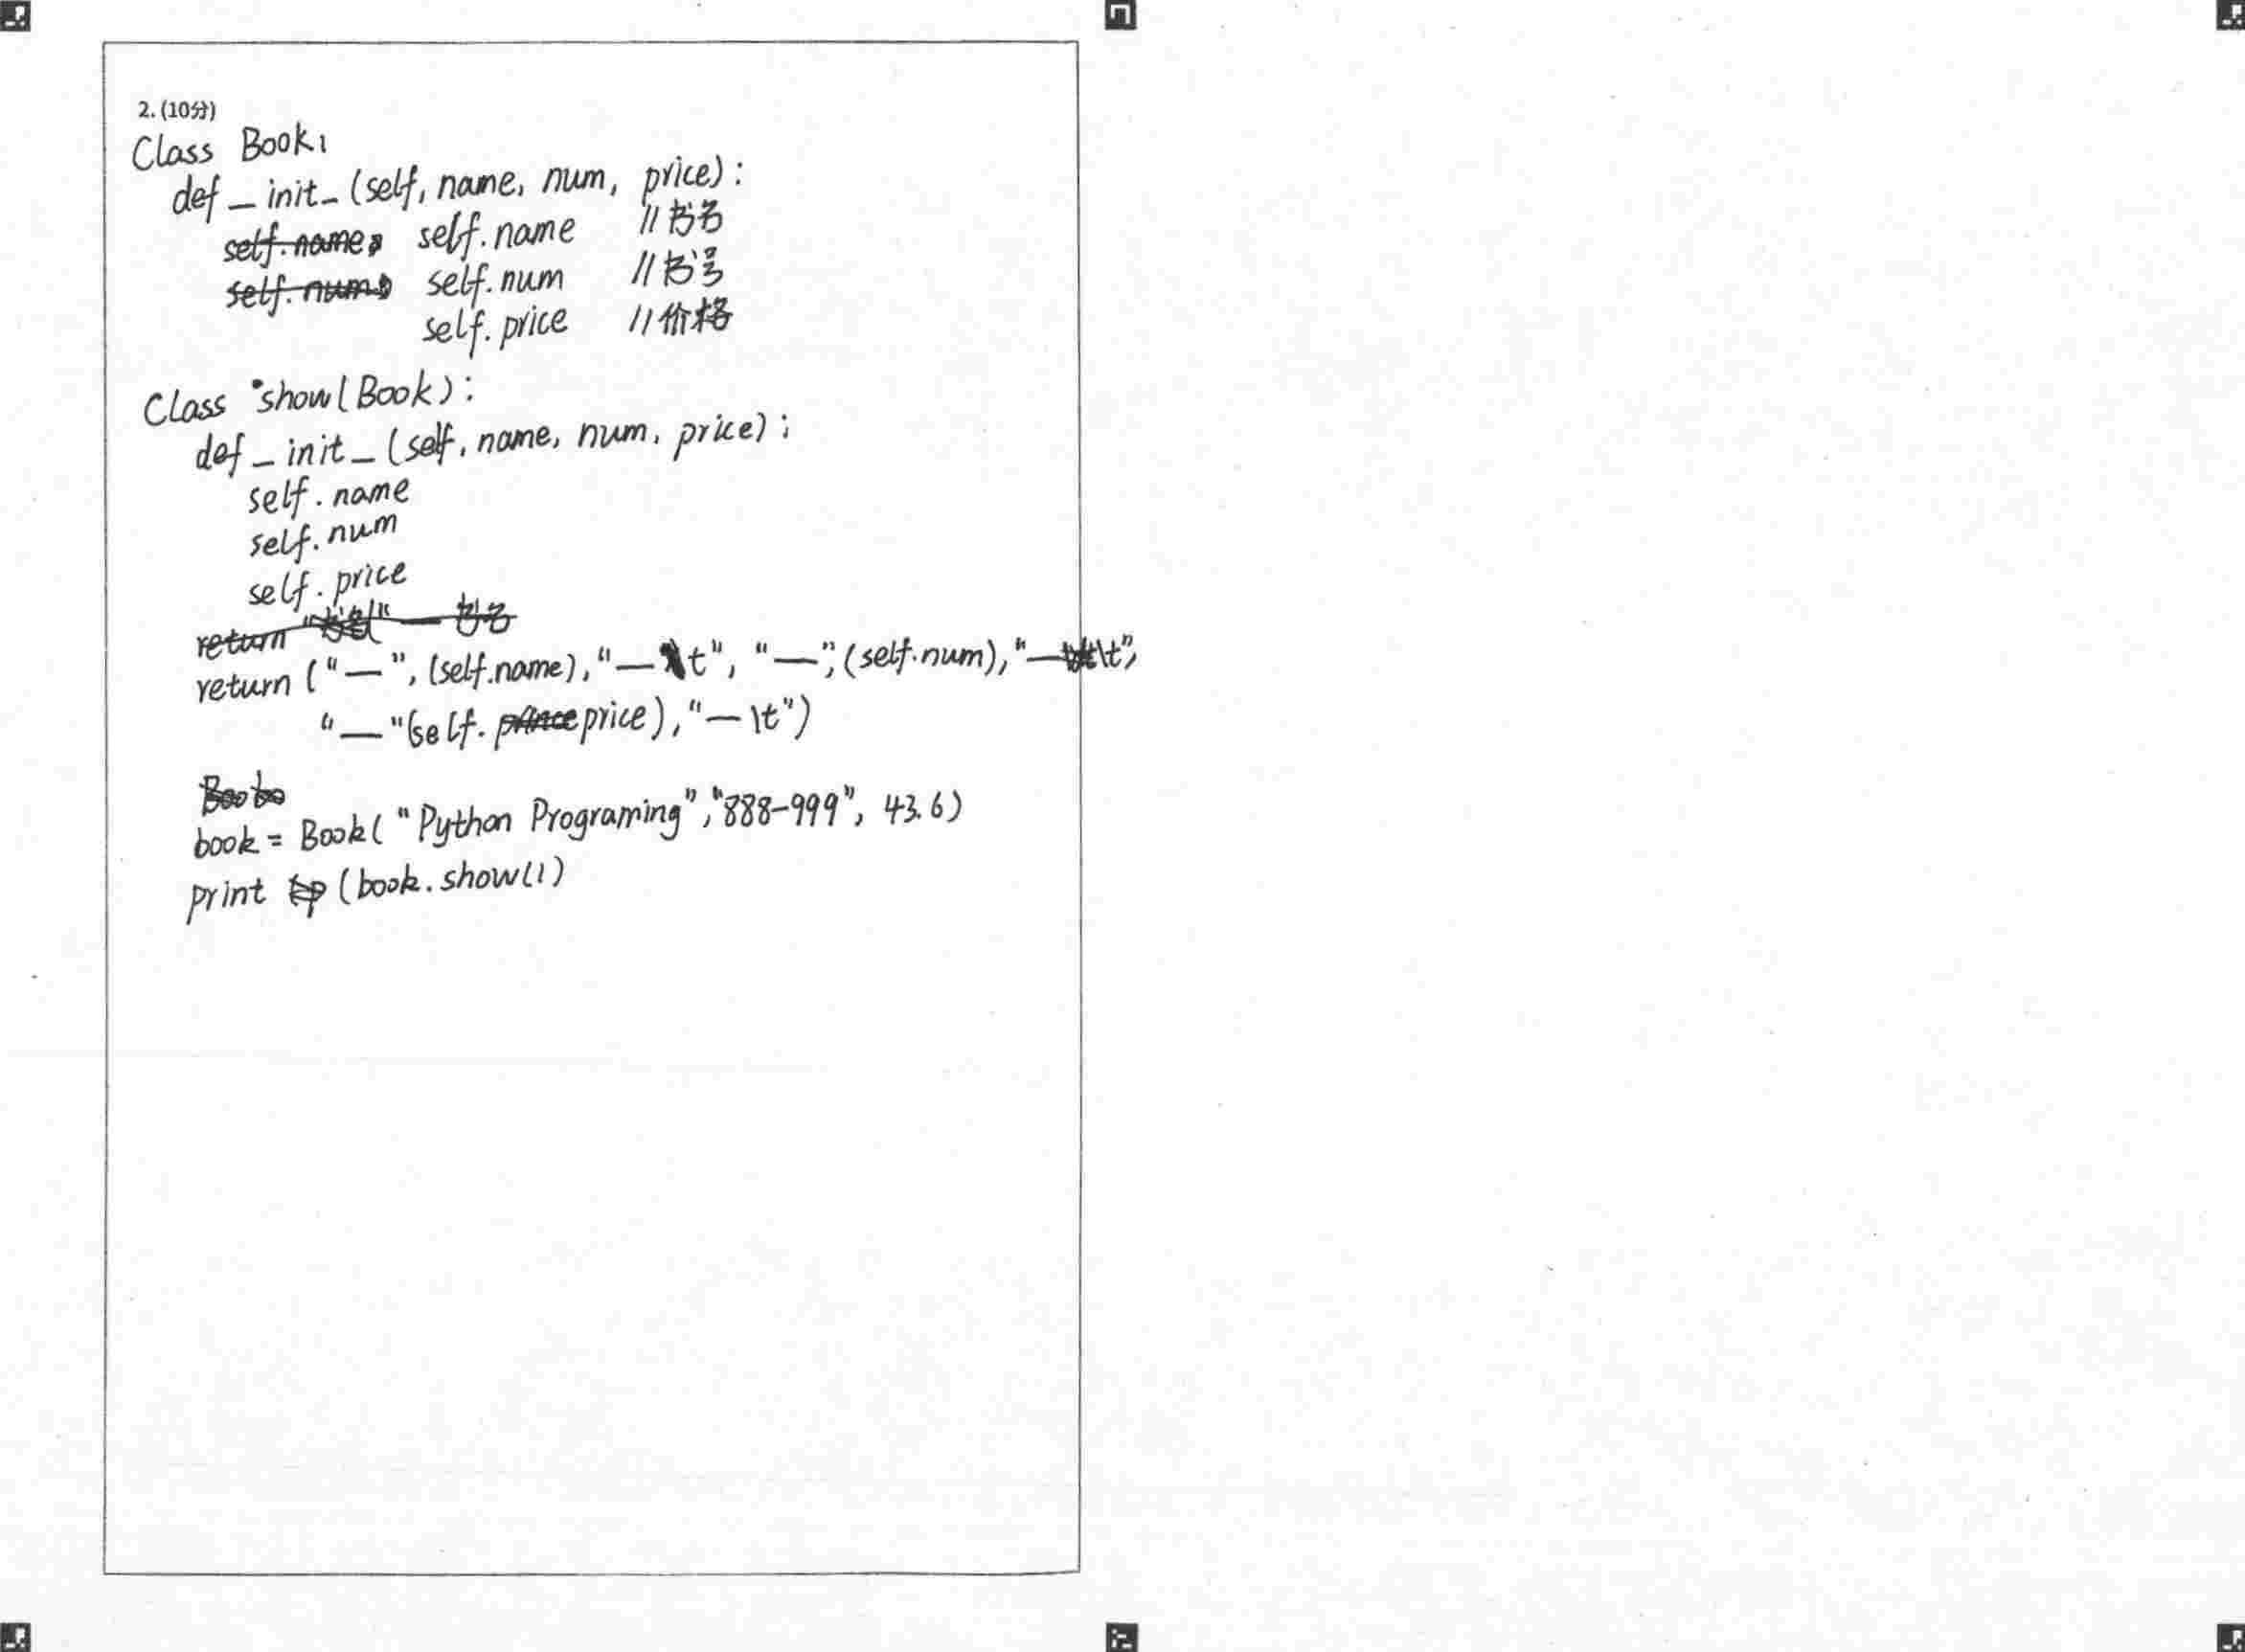 2. (10分)
Class Book:
def _ init _ (self, name, num, price):
self.name //书名
self.num //书号
self.price //价格
Class show(Book):
def _ init _ (self, name, num, price):
self.name
self.num
self.price
return ("—", (self.name), "— \t", "—", (self.num), "— \t",
"—"(self.price), "— \t")
book = Book( "Python Programing", "888-999", 43.6)
print (book.show())